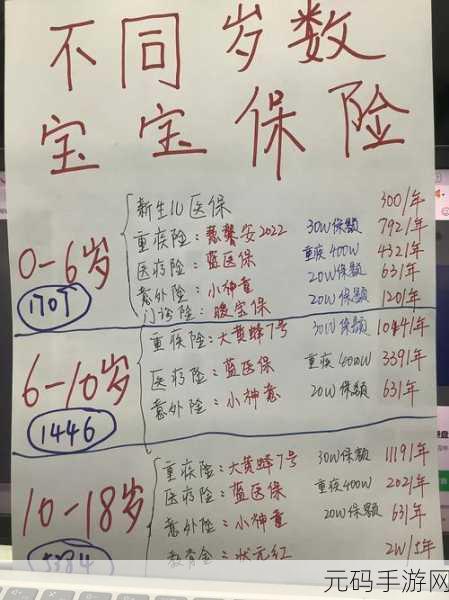 不同岁数
宝宝保险
0-6岁
1707
新生儿医保 300/年
重疾险：慧馨安2022 30W保额 792/年
医疗险：蓝医保 重疾400W 432/年
意外险：小神童 20W保额 63/年
门诊险：暖宝保 20W保额 120/年
6-10岁
1446
重疾险：大黄蜂7号 30W保额 1044/年
医疗险：蓝医保 重疾400W 339/年
意外险：小神童 20W保额 63/年
10-18岁
重疾险：大黄蜂7号 30W保额 1119/年
医疗险：蓝医保 重疾400W 202/年
意外险：小神童 20W保额 63/年
教育金：状元红 2W/年
元码手游网